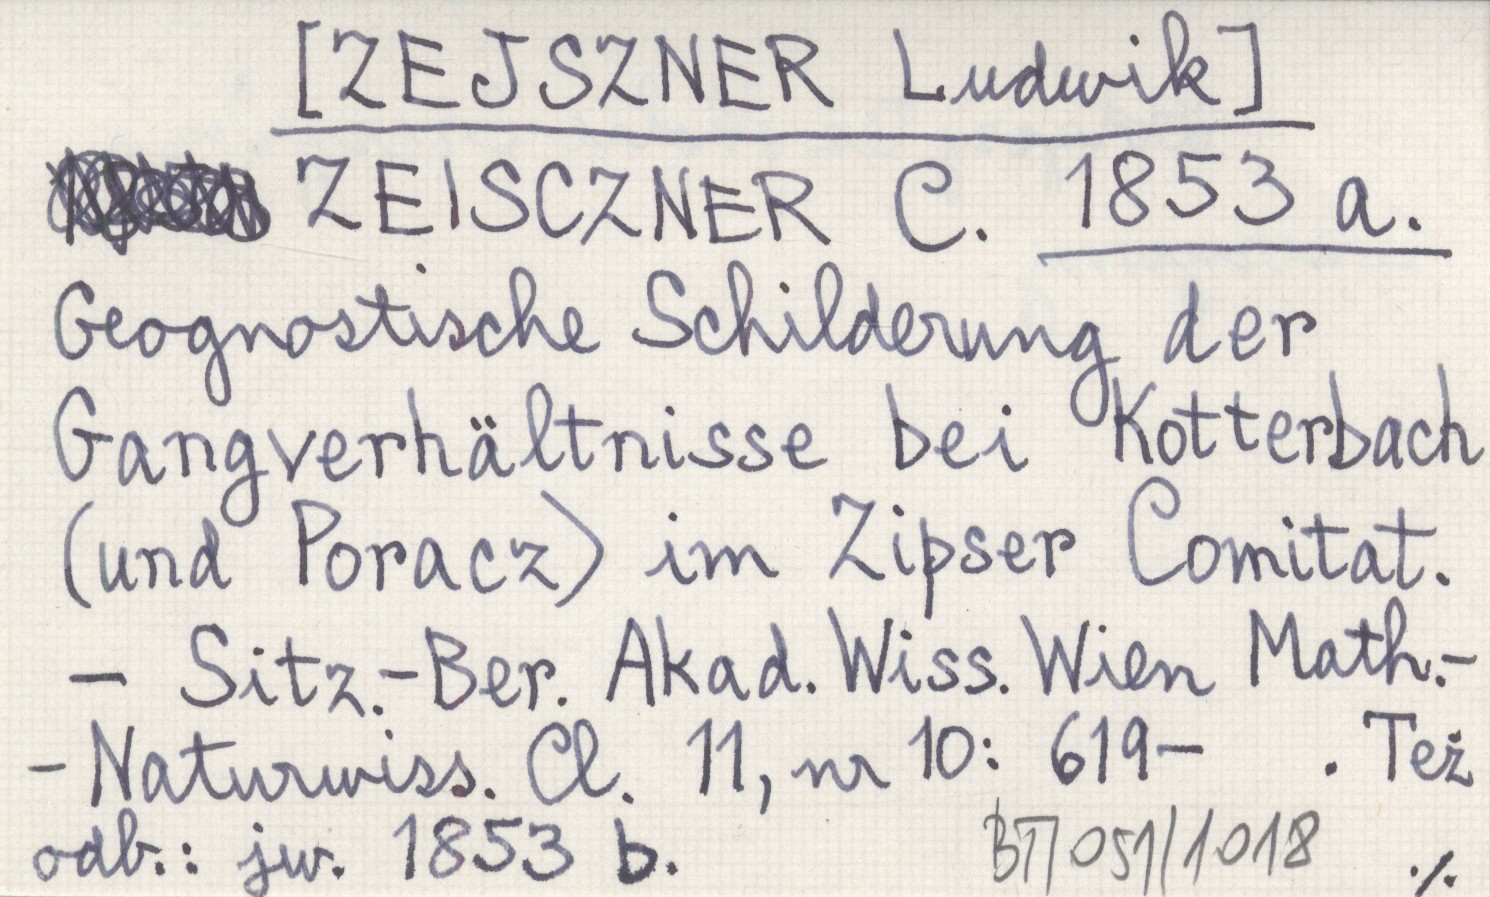 [ZEJSZNER Ludwik]
ZEISCZNER C. 1853 a.
Geognostische Schilderung der
Gangverhältnisse bei Kotterbach
(und Poracz) im Zipser Comitat.
— Sitz.-Ber. Akad. Wiss. Wien Math.-
-Naturwiss. Cl. 11, nr 10: 619— . Też
odb.: jw. 1853 b. BT/051/1018 ./.